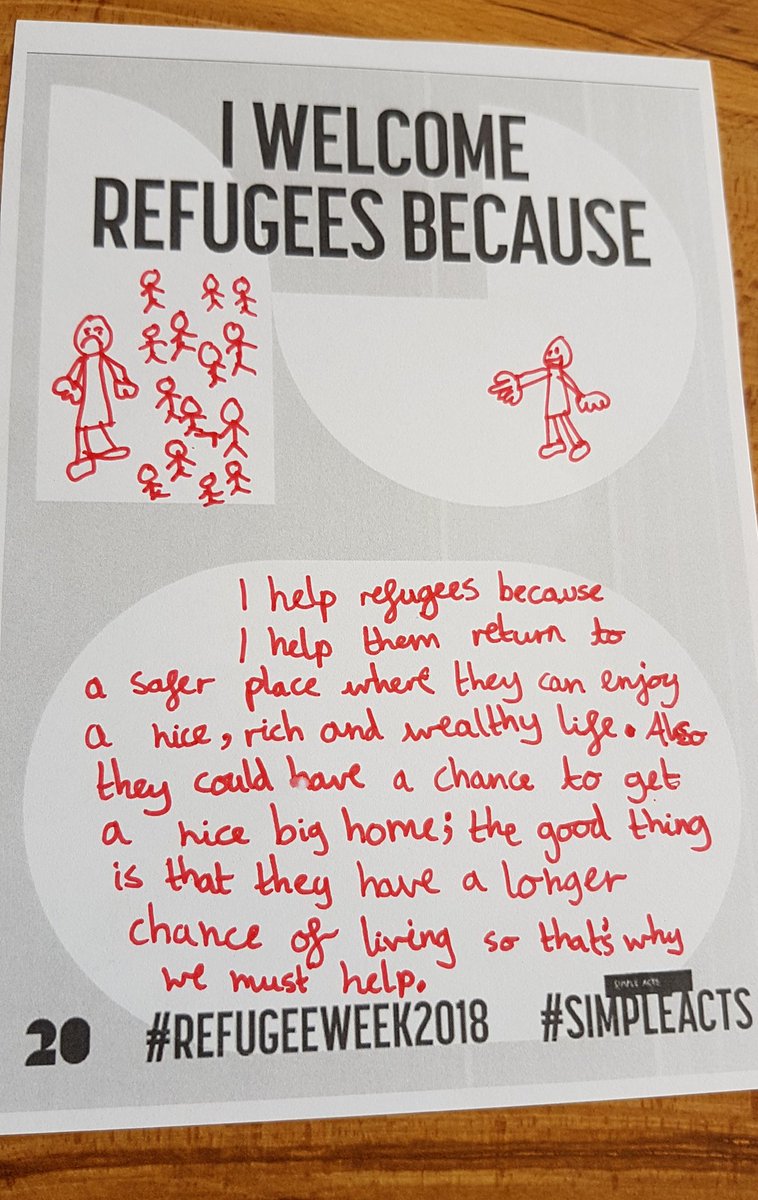 I WELCOME
REFUGEES BECAUSE
I help refugees because
I help them return to
a safer place where they can enjoy
a nice, rich and wealthy life. Also
they could have a chance to get
a nice big home; the good thing
is that they have a longer
chance of living so that's why
we must help.
SIMPLE ACTS
20 #REFUGEEWEEK2018 #SIMPLEACTS